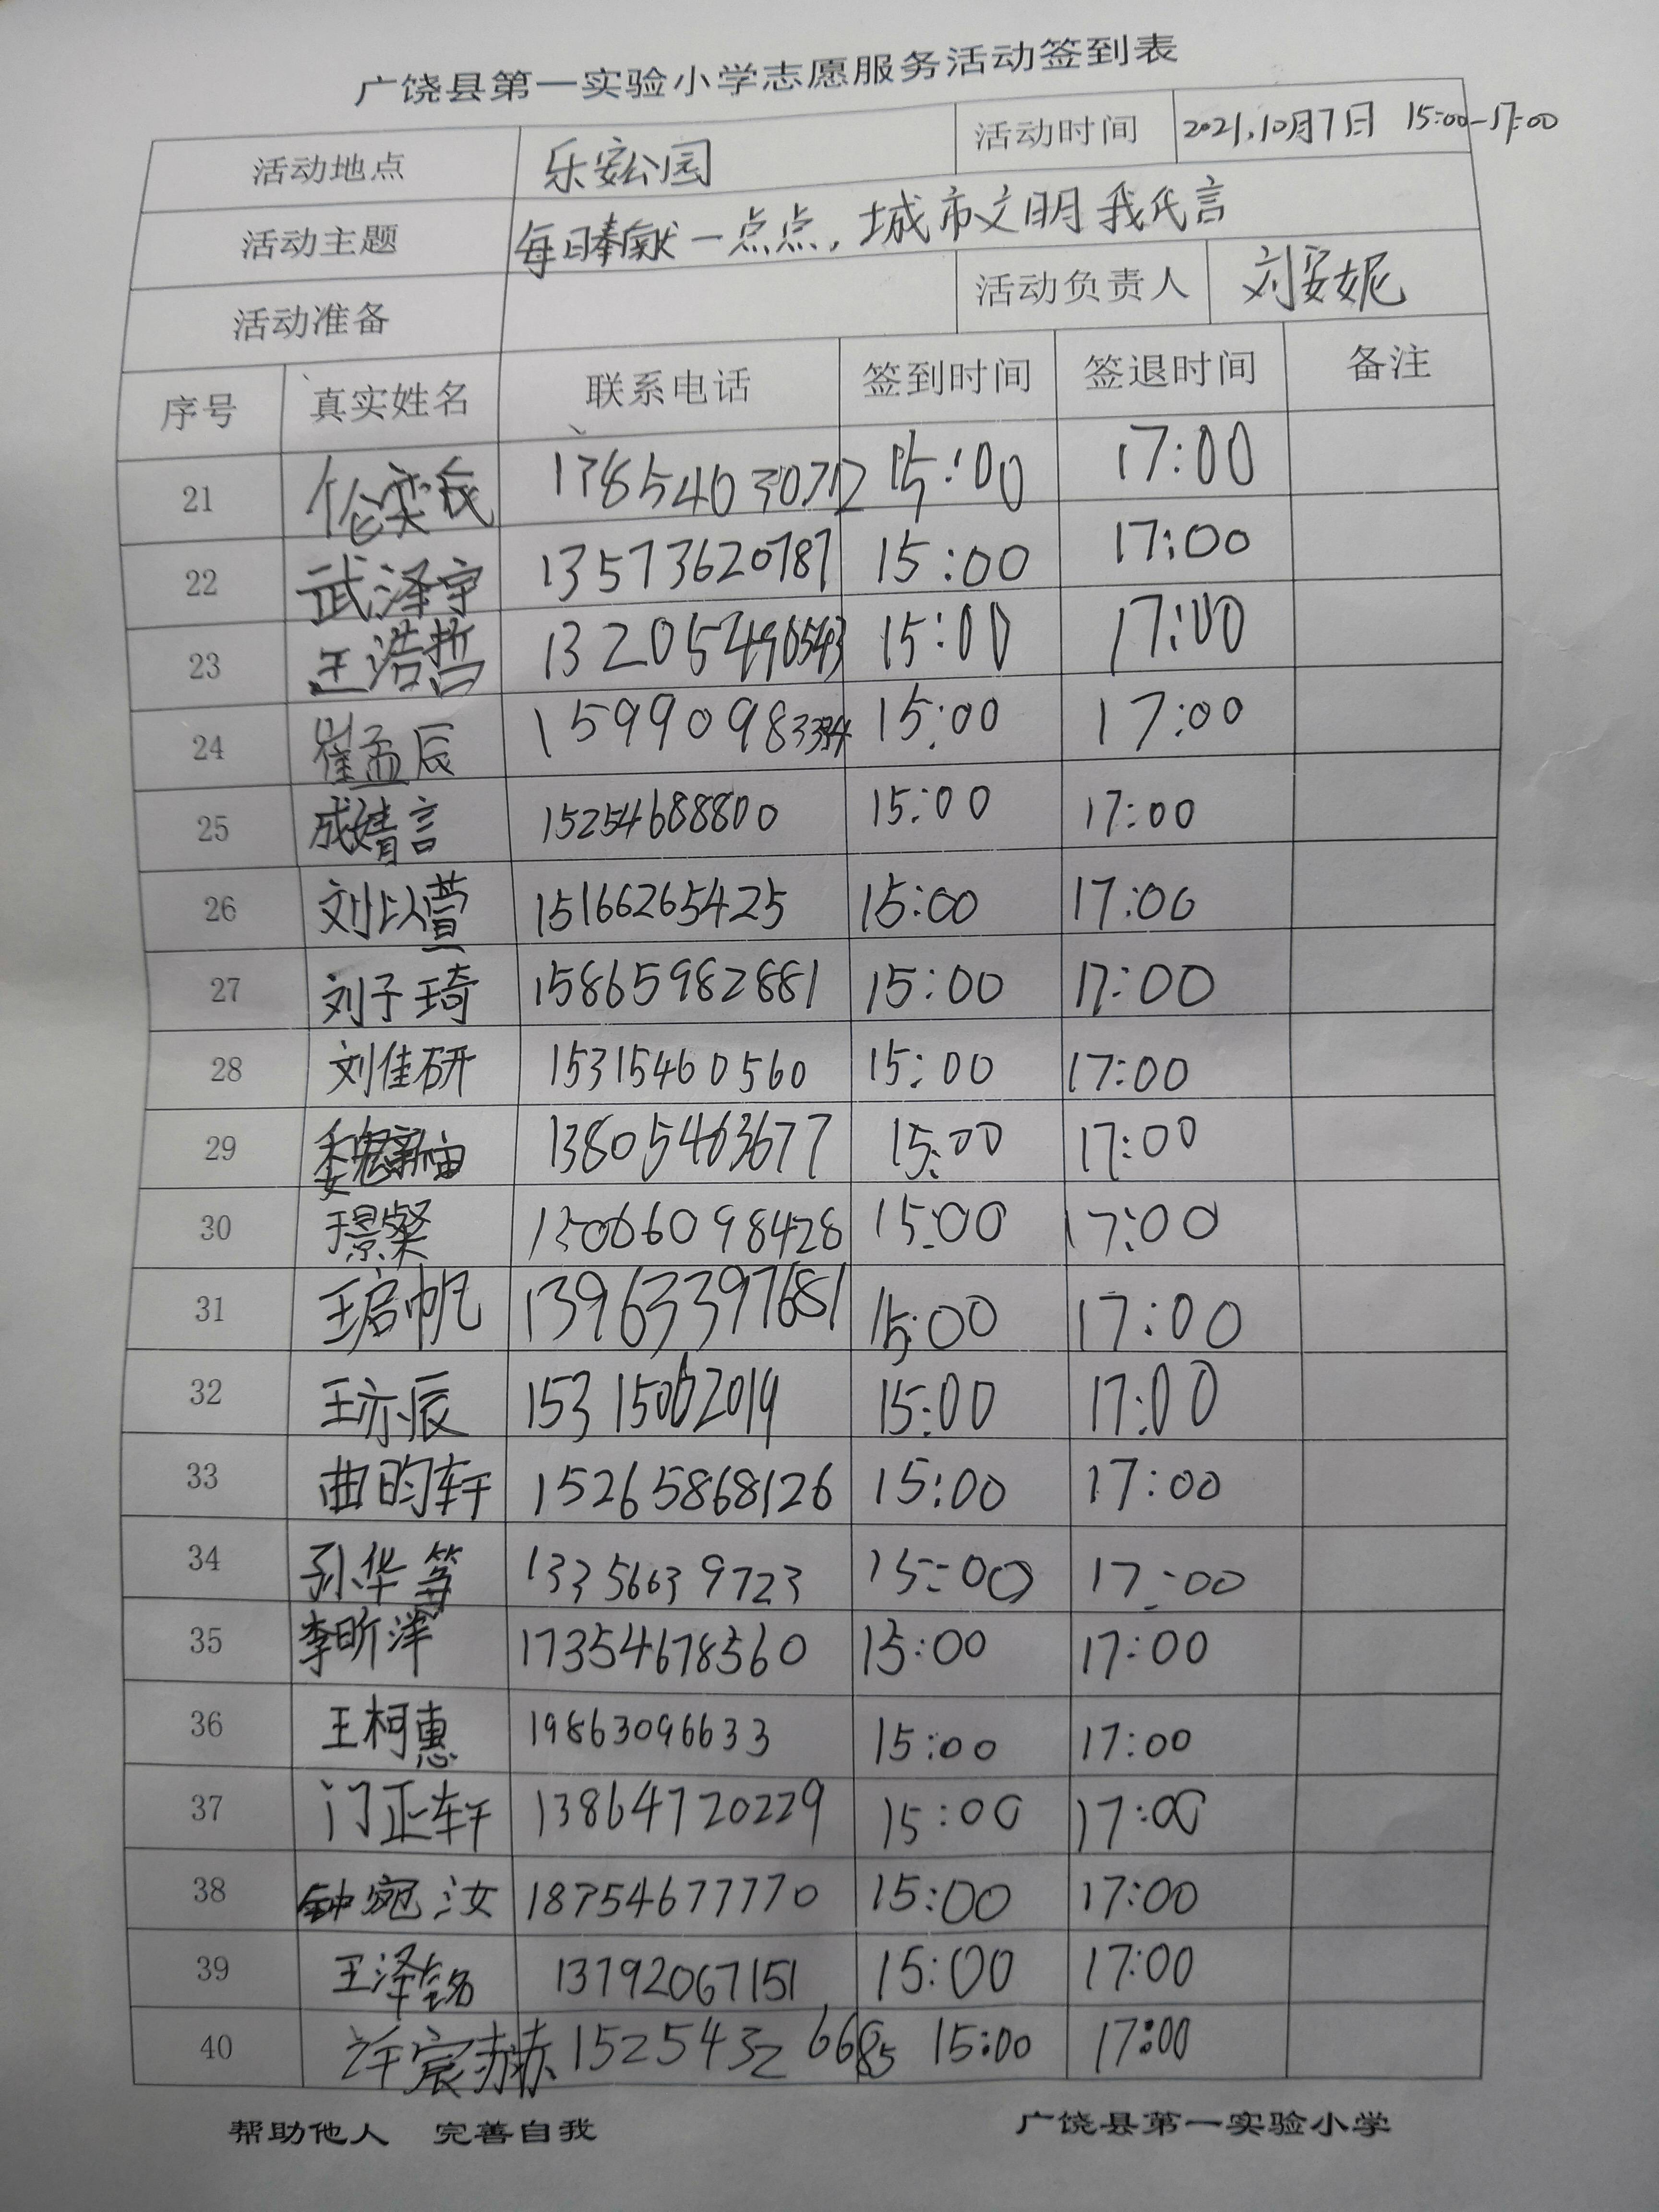 广饶县第一实验小学志愿服务活动签到表
活动地点 乐安公园 活动时间 2021.10月7日 15:00-17:00
活动主题 每日奉献一点点，城市文明我代言
活动准备 活动负责人 刘安妮
序号 真实姓名 联系电话 签到时间 签退时间 备注
21 15:00 17:00
22 武泽宇 13573620787 15:00 17:00
23 王浩哲 13205490543 15:00 17:00
24 崔孟辰 15:00 17:00
25 成婧言 15254688800 15:00 17:00
26 刘以萱 15166265425 15:00 17:00
27 刘子琦 15865982881 15:00 17:00
28 刘佳研 15315460560 15:00 17:00
29 13805463677 15:00 17:00
30 王景粲 15:00 17:00
31 王启帆 13963397681 15:00 17:00
32 王亦辰 15:00 17:00
33 曲昀轩 15265868126 15:00 17:00
34 孙华笛 13356639723 15:00 17:00
35 李昕洋 17354678560 15:00 17:00
36 王柯惠 19863096633 15:00 17:00
37 门正轩 13864720229 15:00 17:00
38 钟宛汝 18754677770 15:00 17:00
39 王泽铭 13792067151 15:00 17:00
40 许宸赫 15254326685 15:00 17:00
帮助他人 完善自我 广饶县第一实验小学